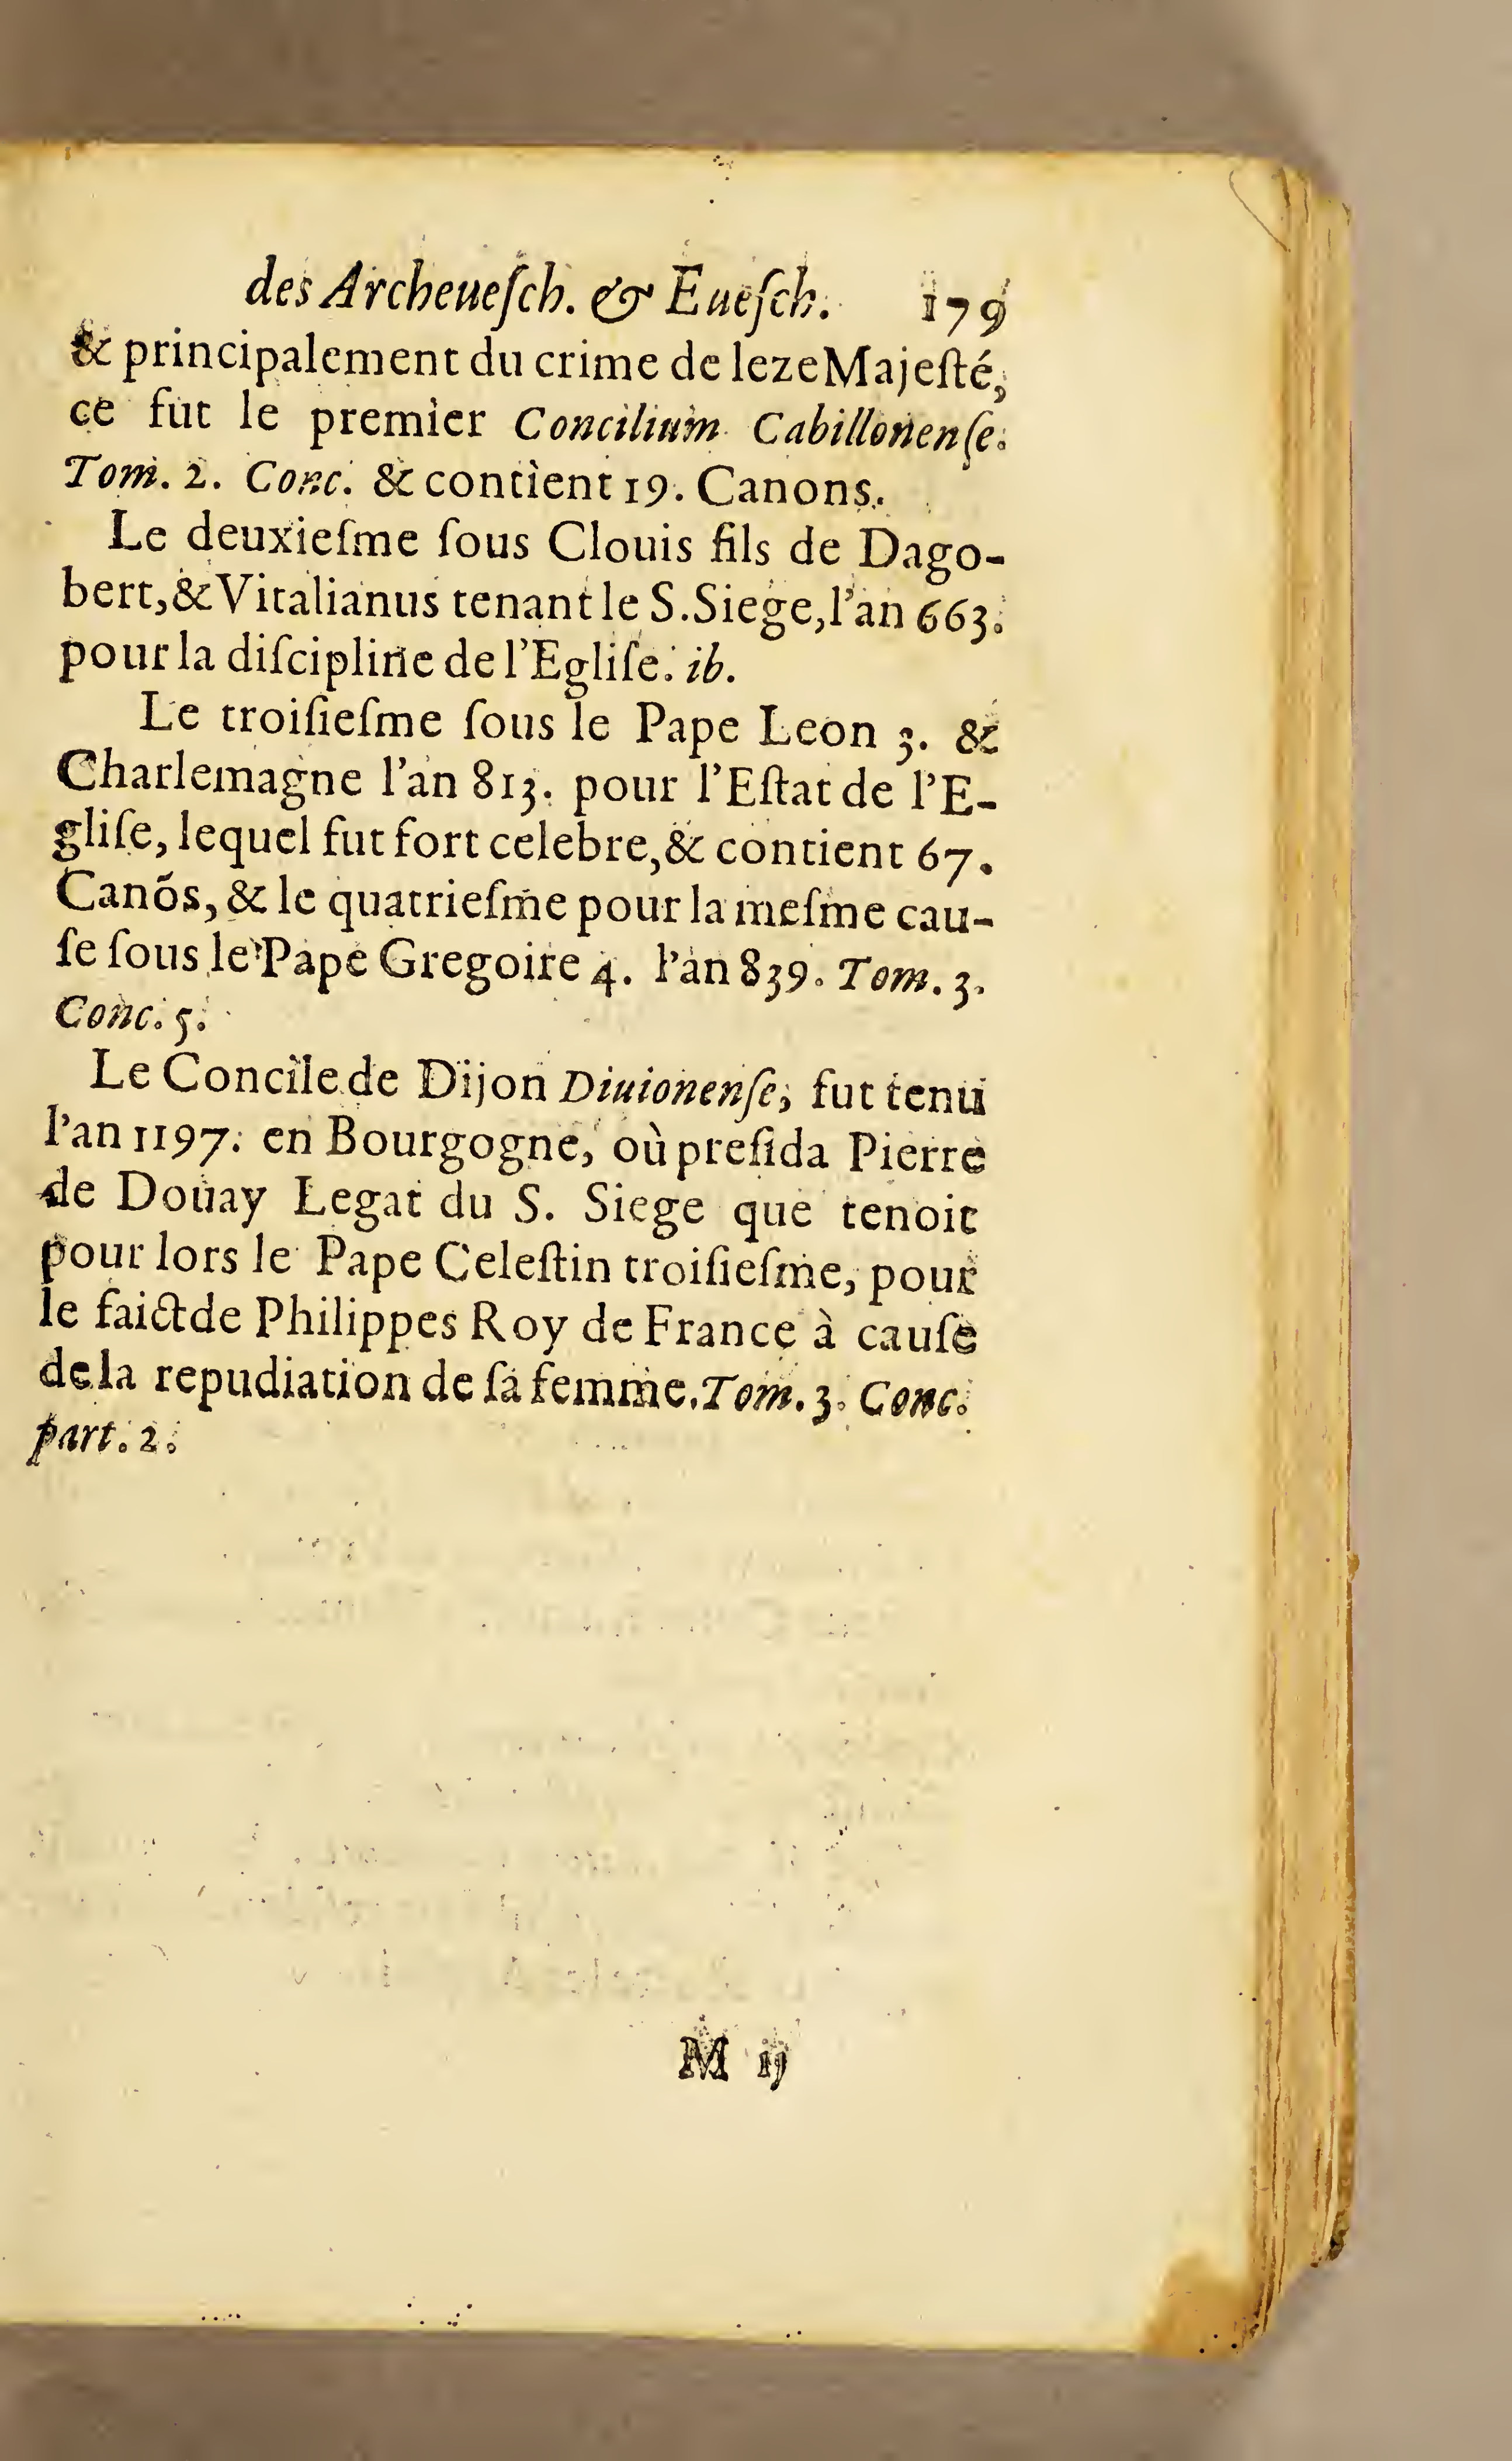 des Archeueſch. & Eueſch. 179
& principalement du crime de lezeMajeſté,
ce fut le premier Concilium Cabillonenſe.
Tom. 2. Conc. & contient 19. Canons.
Le deuxieſme ſous Clouis fils de Dago-
bert, & Vitalianus tenant le S. Siege, l'an 663.
pour la diſcipline de l'Egliſe. ib.
Le troiſieſme ſous le Pape Leon 3. &
Charlemagne l'an 813. pour l'Eſtat de l'E-
gliſe, lequel fut fort celebre, & contient 67.
Canõs, & le quatrieſme pour la meſme cau-
ſe ſous le Pape Gregoire 4. l'an 839. Tom. 3.
Conc. 5.
Le Concile de Dijon Diuionenſe, fut tenu
l'an 1197. en Bourgogne, où preſida Pierre
de Doüay Legat du S. Siege que tenoit
pour lors le Pape Celeſtin troiſieſme, pour
le faict de Philippes Roy de France à cauſe
de la repudiation de ſa femme. Tom. 3. Conc.
part. 2.
M ij